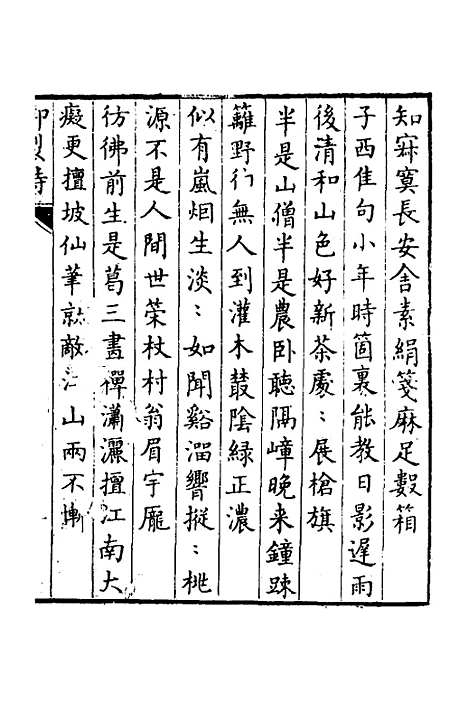 知寂寞長安舍素絹箋麻足數箱
子西佳句小年時箇裏能教日影遲雨
後清和山色好新茶處〻展槍旗
半是山僧半是農卧聽隔嶂晚来鐘踈
籬野彴無人到灌木叢陰綠正濃
似有嵐烟生淡〻如聞谿溜響摐〻桃
源不是人間世荣杖村翁眉宇厖
彷彿前生是葛三畫禪瀟灑擅江南大
癡更擅坡仙筆敵江山兩不慚
御製詩